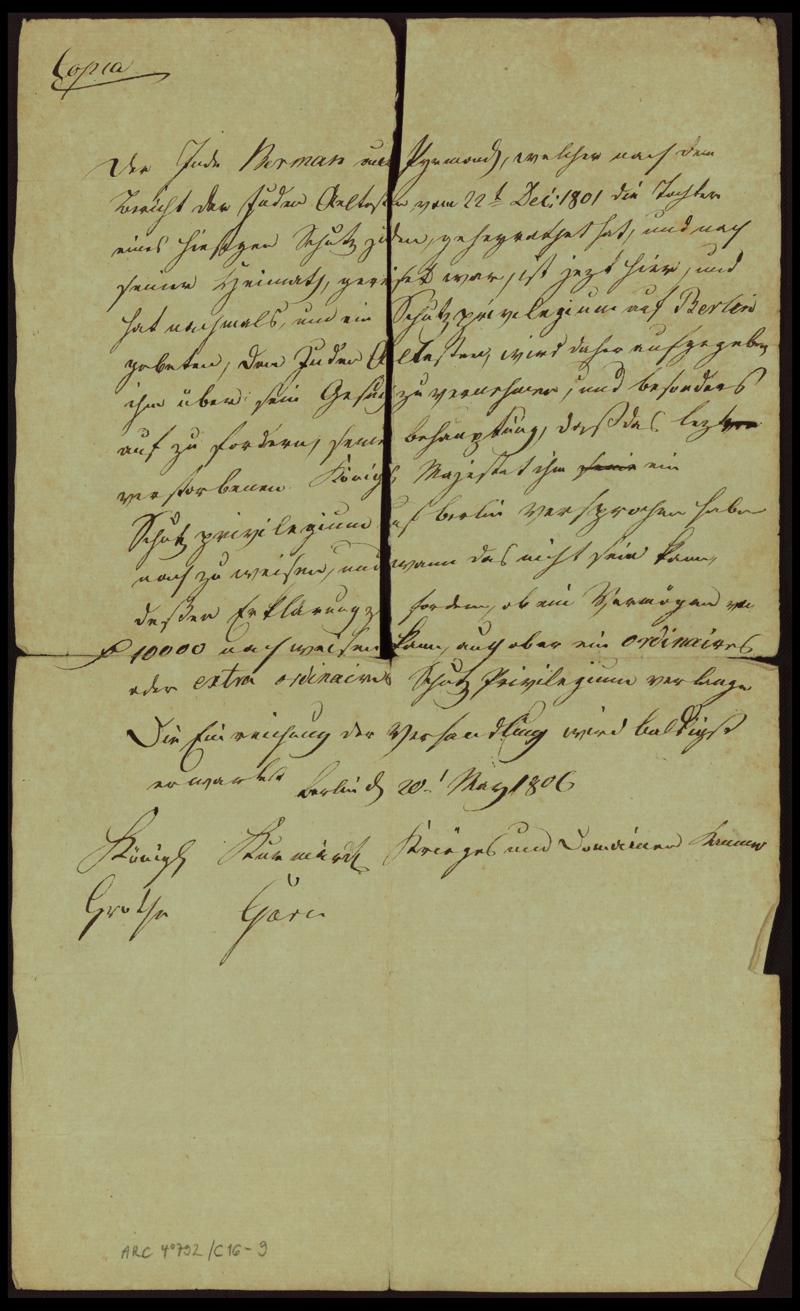 Copia
Der Jude Berman aus Pyrmondt, welcher nach dem
Bericht der Juden Aeltesten vom 22t Dec: 1801 die Tochter
eines hiesigen Schutz juden, geheyrathet hat, und nach
seiner Heimath, gereiset war, ist jezt hier, und
hat nachmals, um ein Schutz privilegium auf Berlin
gebeten, den Juden Aeltesten, wird daher aufgegeben
ihn über sein Gesuch zu vernehmen, und besonders
auf zu fordern, seine behauptung, daß des lezt
verstorbenen Königl Majestet ihm ein
Schutz privilegium auf berlin versprochen habe
nach zu weisen, und wann das nicht sein kann,
deßen Erklärung zu fordern, ob ein Vermögen von
10000 nach weisen kann, auch ober ein ordinaires
oder extra ordinaires Schutz Privilegium verlange
Die Einreichung der Verhandlung wird baldigst
erwartet berlin d 20t May 1806
Königl Kurmärck Krieges und Domainen Kammer
Grothe
ARC 4°792/C16-9